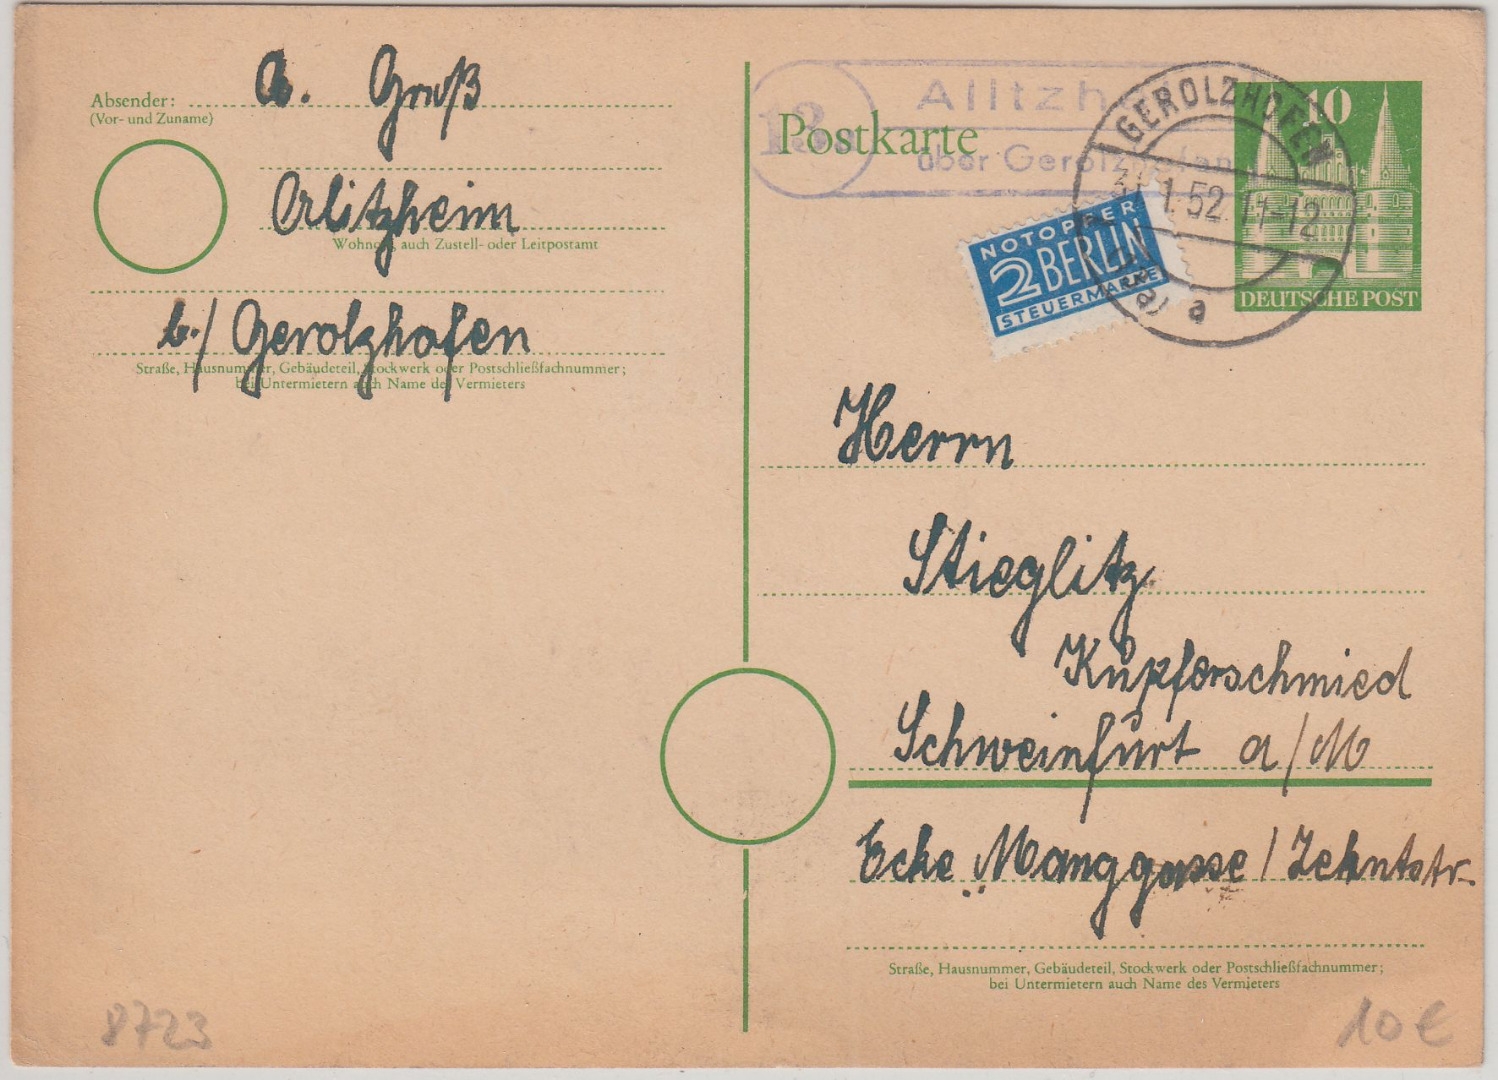 Absender: A. Groß
(Vor- und Zuname)
Orlitzheim
Wohnort, auch Zustell- oder Leitpostamt
b./ Gerolzhofen
Straße, Hausnummer, Gebäudeteil, Stockwerk oder Postschließfachnummer;
bei Untermietern auch Name des Vermieters
8723
13a
Alitzh
über Gerolzhofen
Postkarte
GEROLZHOFEN
31.1.52.11-12
a
NOTOPFER
2 BERLIN
STEUERMARKE
10
DEUTSCHE POST
Herrn
Stieglitz
Kupferschmied
Schweinfurt a/M
Ecke Manggasse / Zehntstr.
Straße, Hausnummer, Gebäudeteil, Stockwerk oder Postschließfachnummer;
bei Untermietern auch Name des Vermieters
10 €